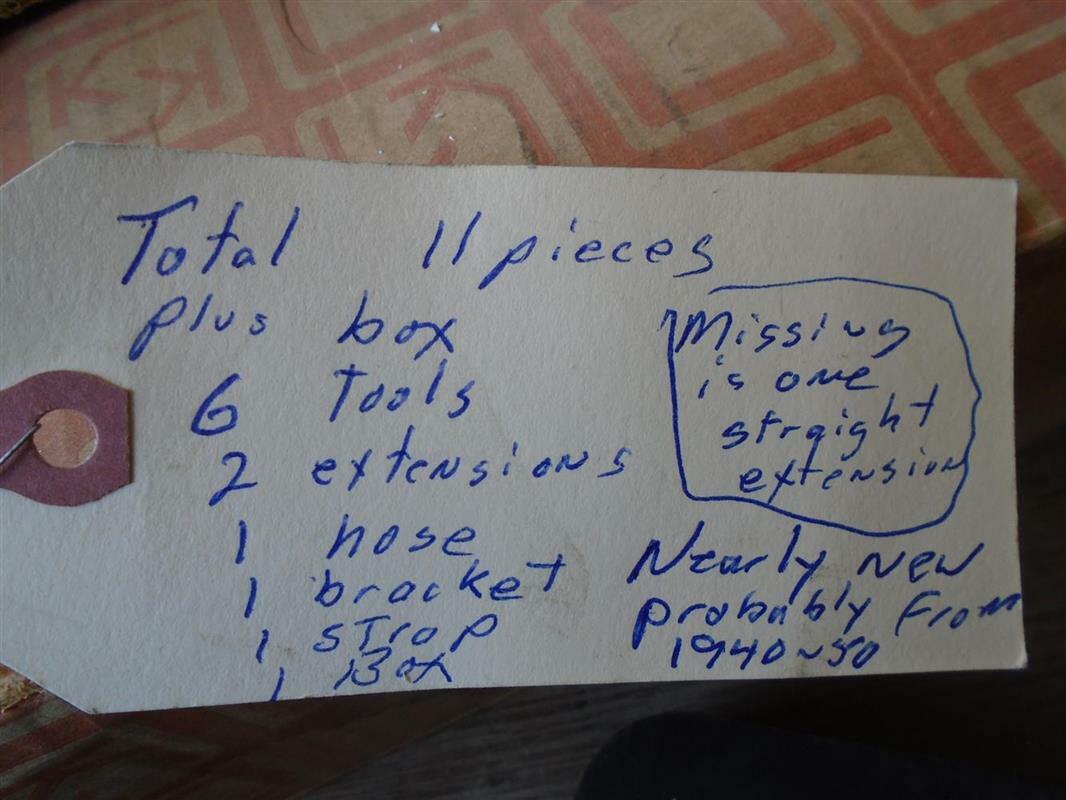 Total 11 pieces
plus box
6 Tools
2 extensions
1 hose
1 bracket
1 strap
1 Box
Missing
is one
straight
extension
Nearly new
probably from
1940~50